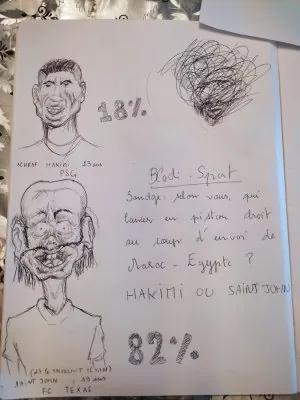 18%
ACHRAF HAKIMI 23 ans
PSG
Sport
Sondage: selon vous, qui
lancer en piston droit
au coup d'envoi de
Maroc - Egypte ?
HAKIMI OU SAINT JOHN
82%
SAINT JOHN, 19 ans
FC TEXAS